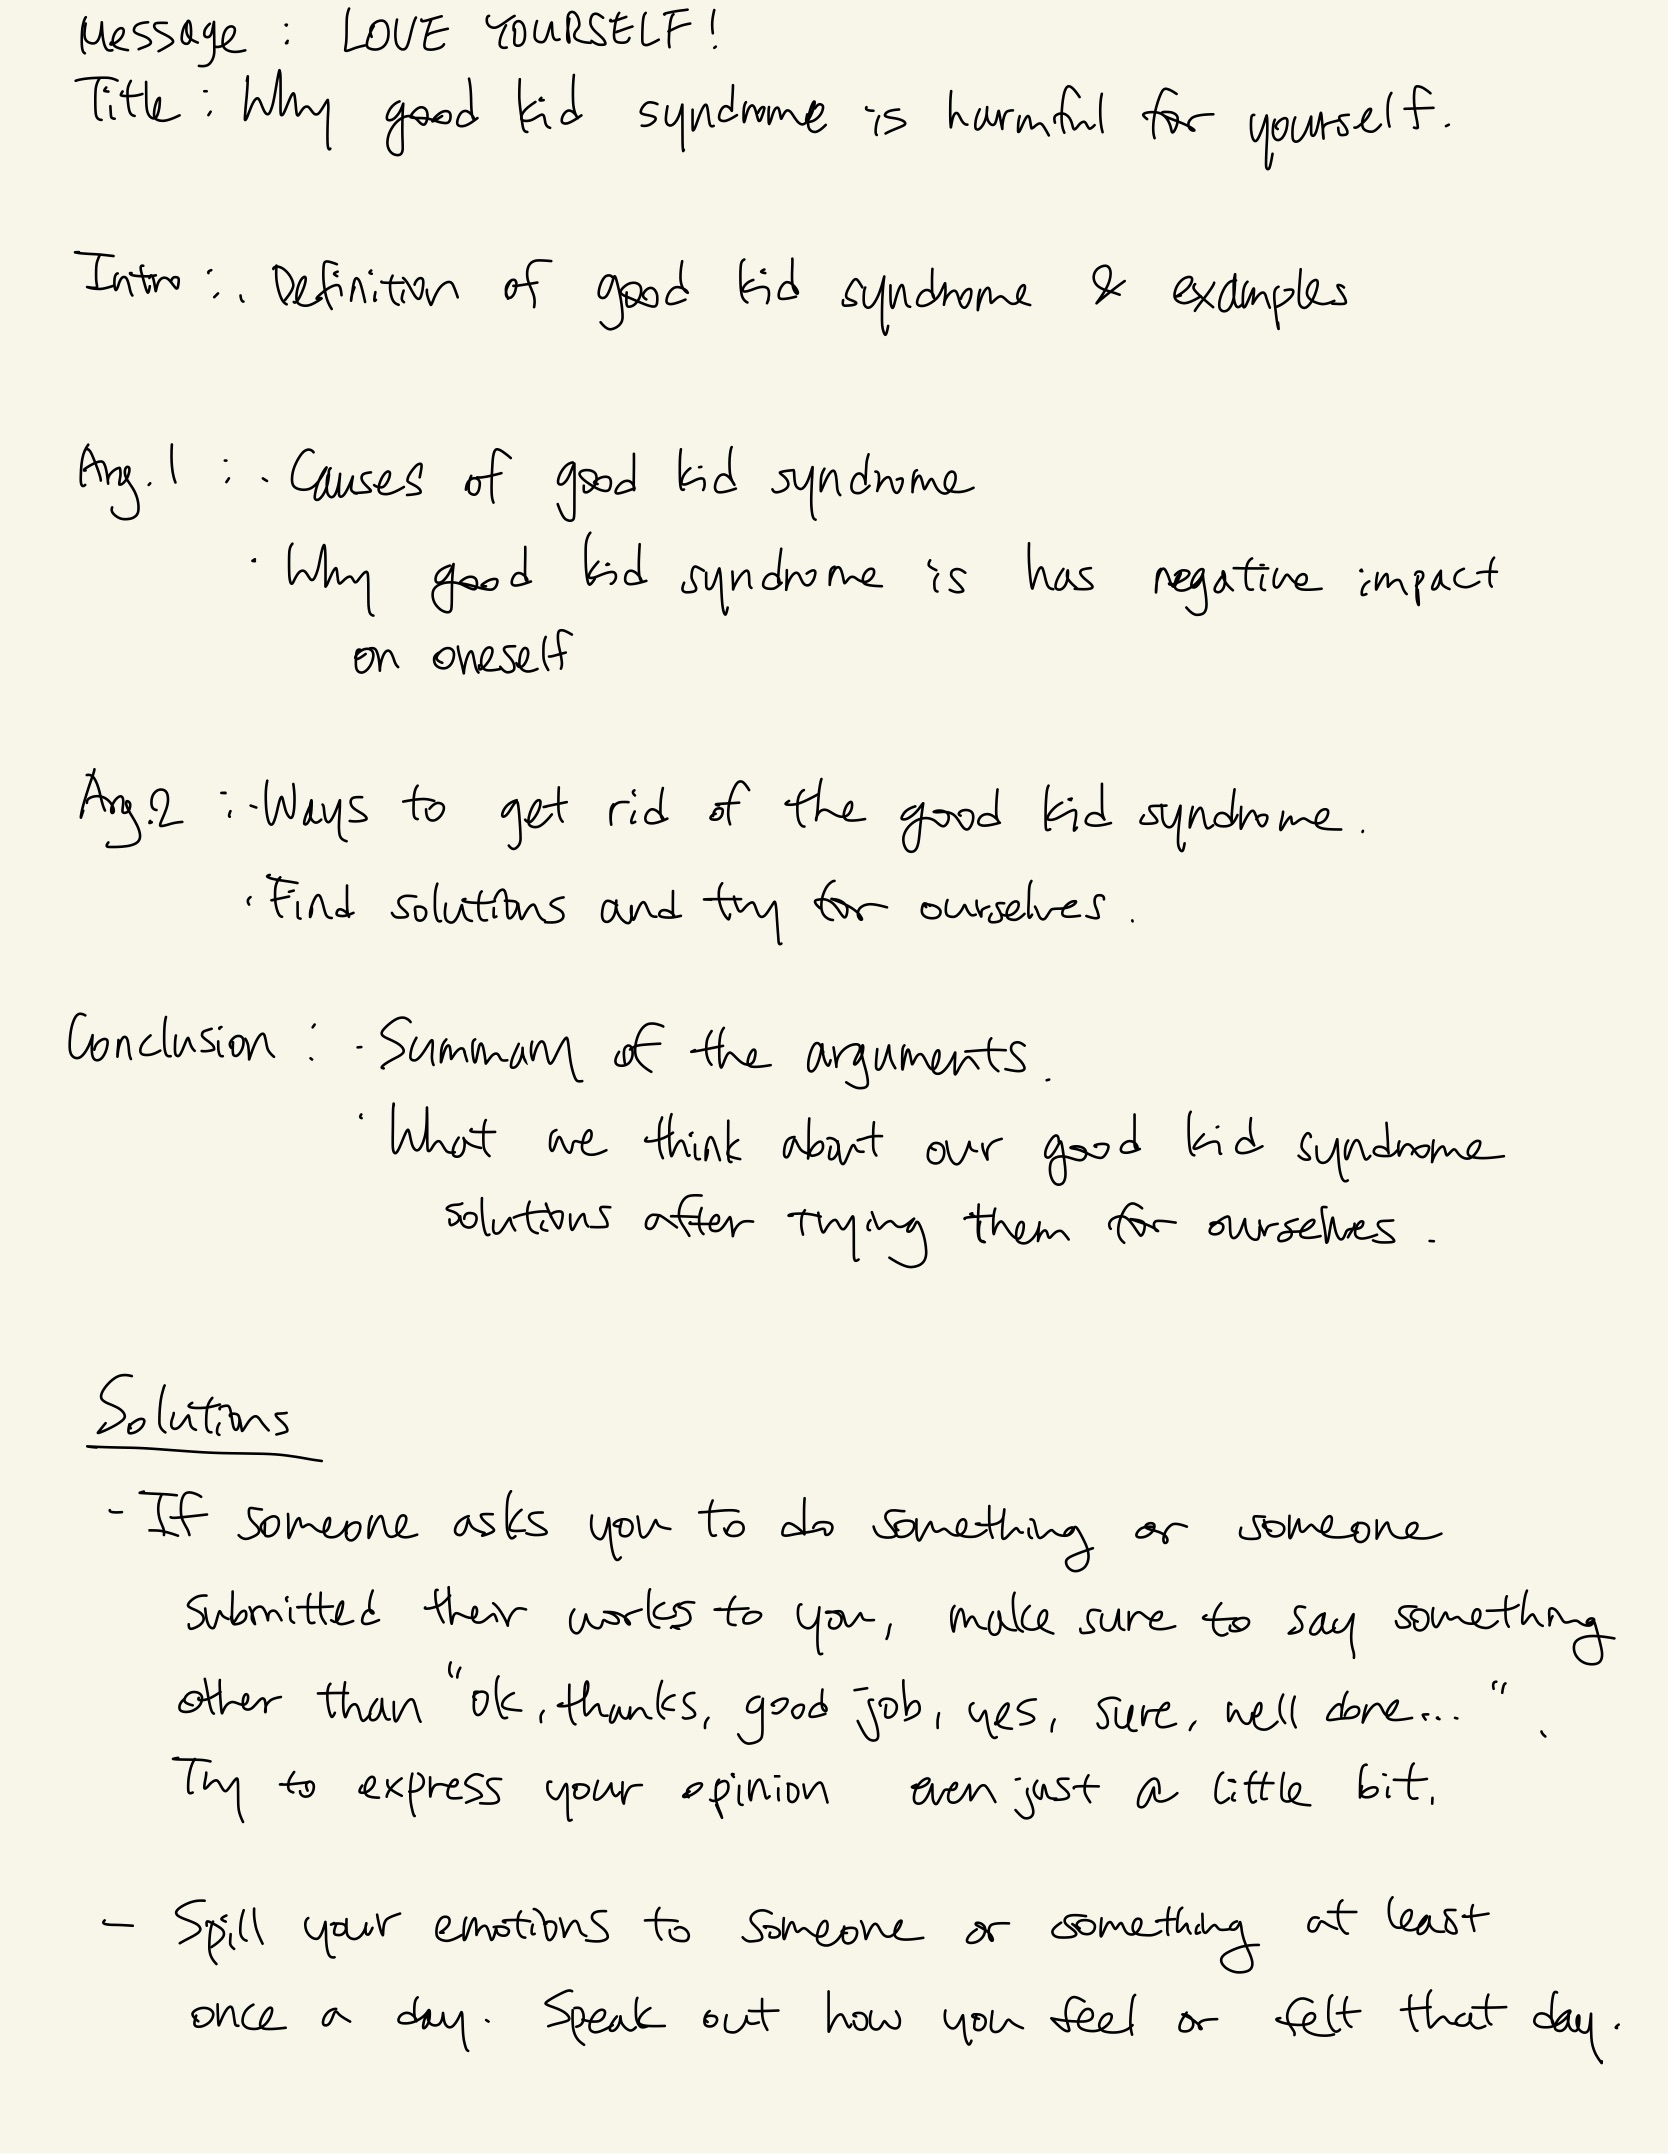 Message : LOVE YOURSELF!
Title : Why good kid syndrome is harmful for yourself.
Intro : · Definition of good kid syndrome & examples
Arg. 1 : · Causes of good kid syndrome
· Why good kid syndrome is has negative impact
on oneself
Arg. 2 : · Ways to get rid of the good kid syndrome.
· Find solutions and try for ourselves.
Conclusion : · Summary of the arguments.
· What we think about our good kid syndrome
solutions after trying them for ourselves.
Solutions
- If someone asks you to do something or someone
submitted their works to you, make sure to say something
other than "ok, thanks, good job, yes, sure, well done... ".
Try to express your opinion even just a little bit.
- Spill your emotions to someone or something at least
once a day. Speak out how you feel or felt that day.